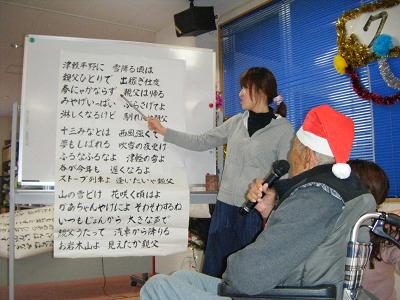 津軽平野に 雪降る頃は
親父ひとりで 出稼ぎ仕度
春にゃかならず 親父は帰る
みやげいっぱい ぶらさげてよ
淋しくなるけど 馴れ 親父
十三みなとは 西風強くて
夢もしばれる 吹雪の夜更け
ふるなふるなよ 津軽の雪よ
春が今年も 遅くなるよ
ストーブ列車よ 逢いたいや親父
山の雪どけ 花咲く頃はよ
かあちゃんやけによ そわそわするね
いつもじょんから 大きな声で
親父うたって 汽車から降りる
お岩木山よ 見えたか親父